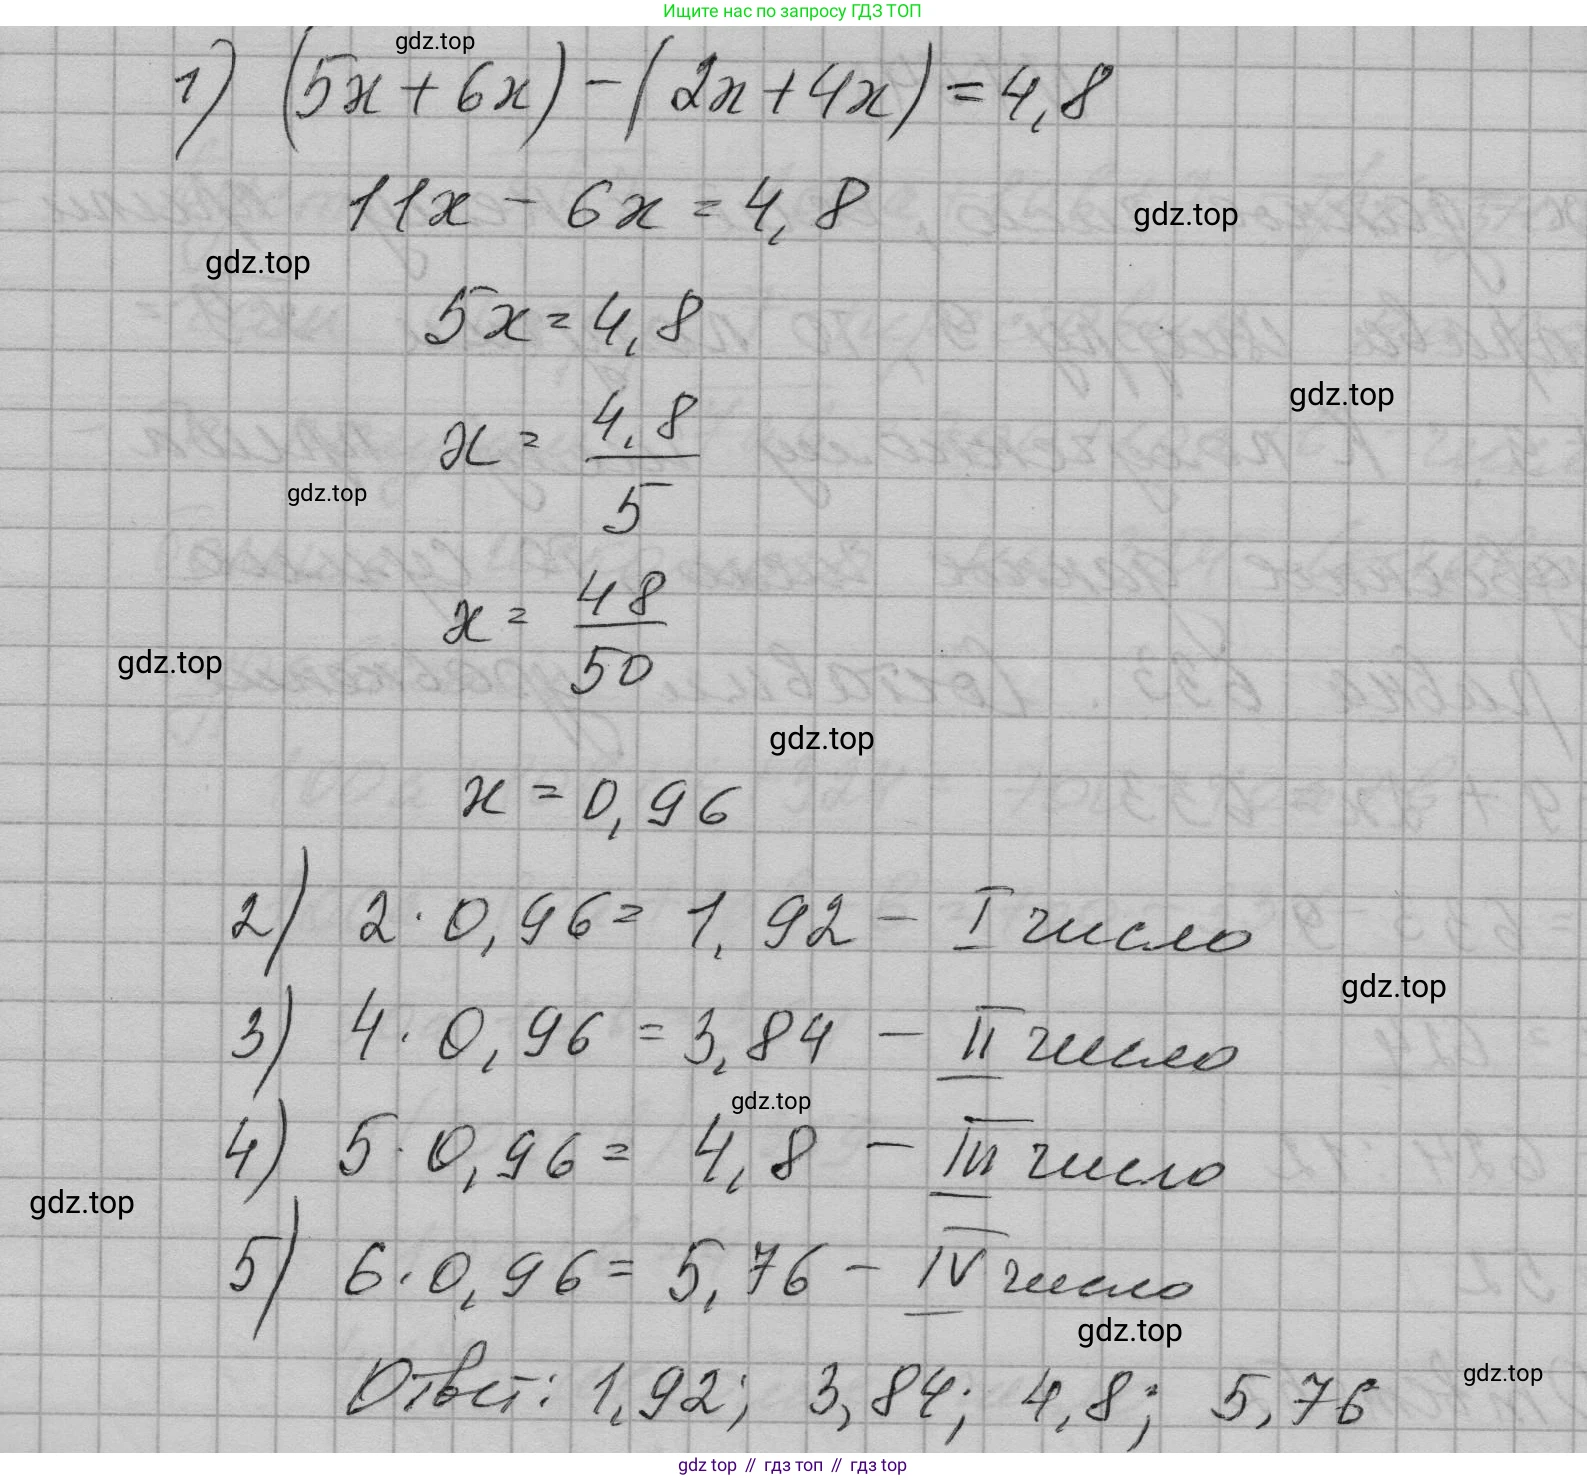 Ищите нас по запросу ГДЗ ТОП
gdz.top
1) (5x + 6x) - (2x + 4x) = 4,8
11x - 6x = 4,8
gdz.top
gdz.top
5x = 4,8
gdz.top
x = 4,8/5
gdz.top
x = 48/50
gdz.top
gdz.top
x = 0,96
2) 2 · 0,96 = 1,92 - I число
gdz.top
3) 4 · 0,96 = 3,84 - II число
gdz.top
4) 5 · 0,96 = 4,8 - III число
gdz.top
5) 6 · 0,96 = 5,76 - IV число
gdz.top
gdz.top
Ответ: 1,92; 3,84; 4,8; 5,76
gdz top // гдз топ // гдз top